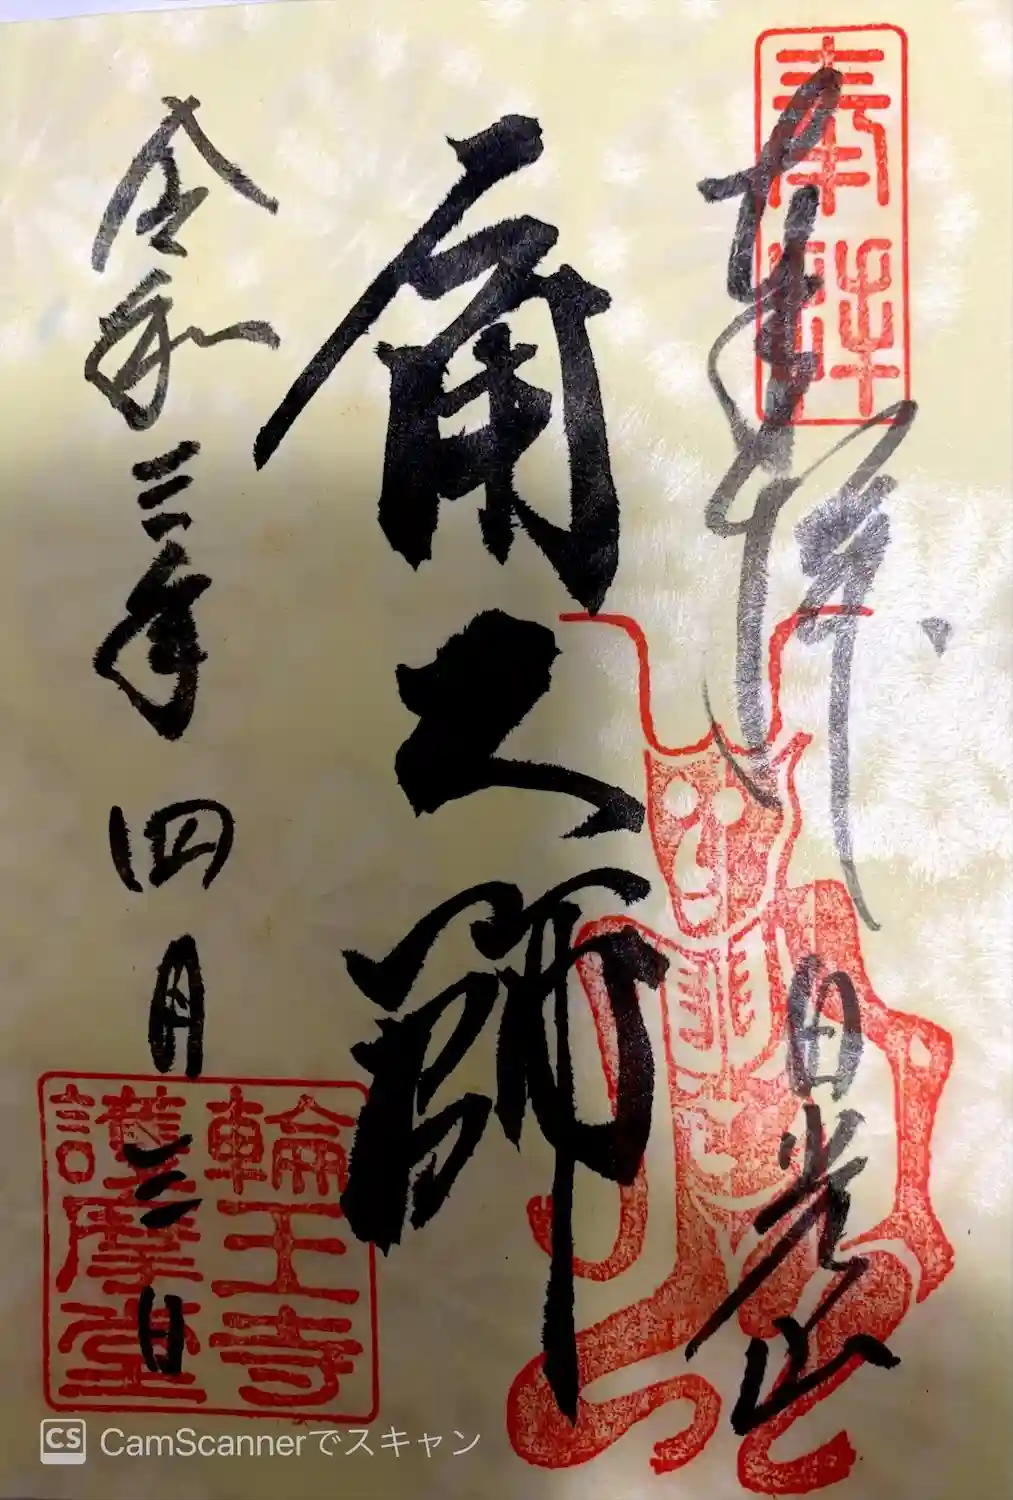 奉拝
奉拝
日光山
角大師
令和三年四月三日
輪王寺
護摩堂
CS CamScannerでスキャン